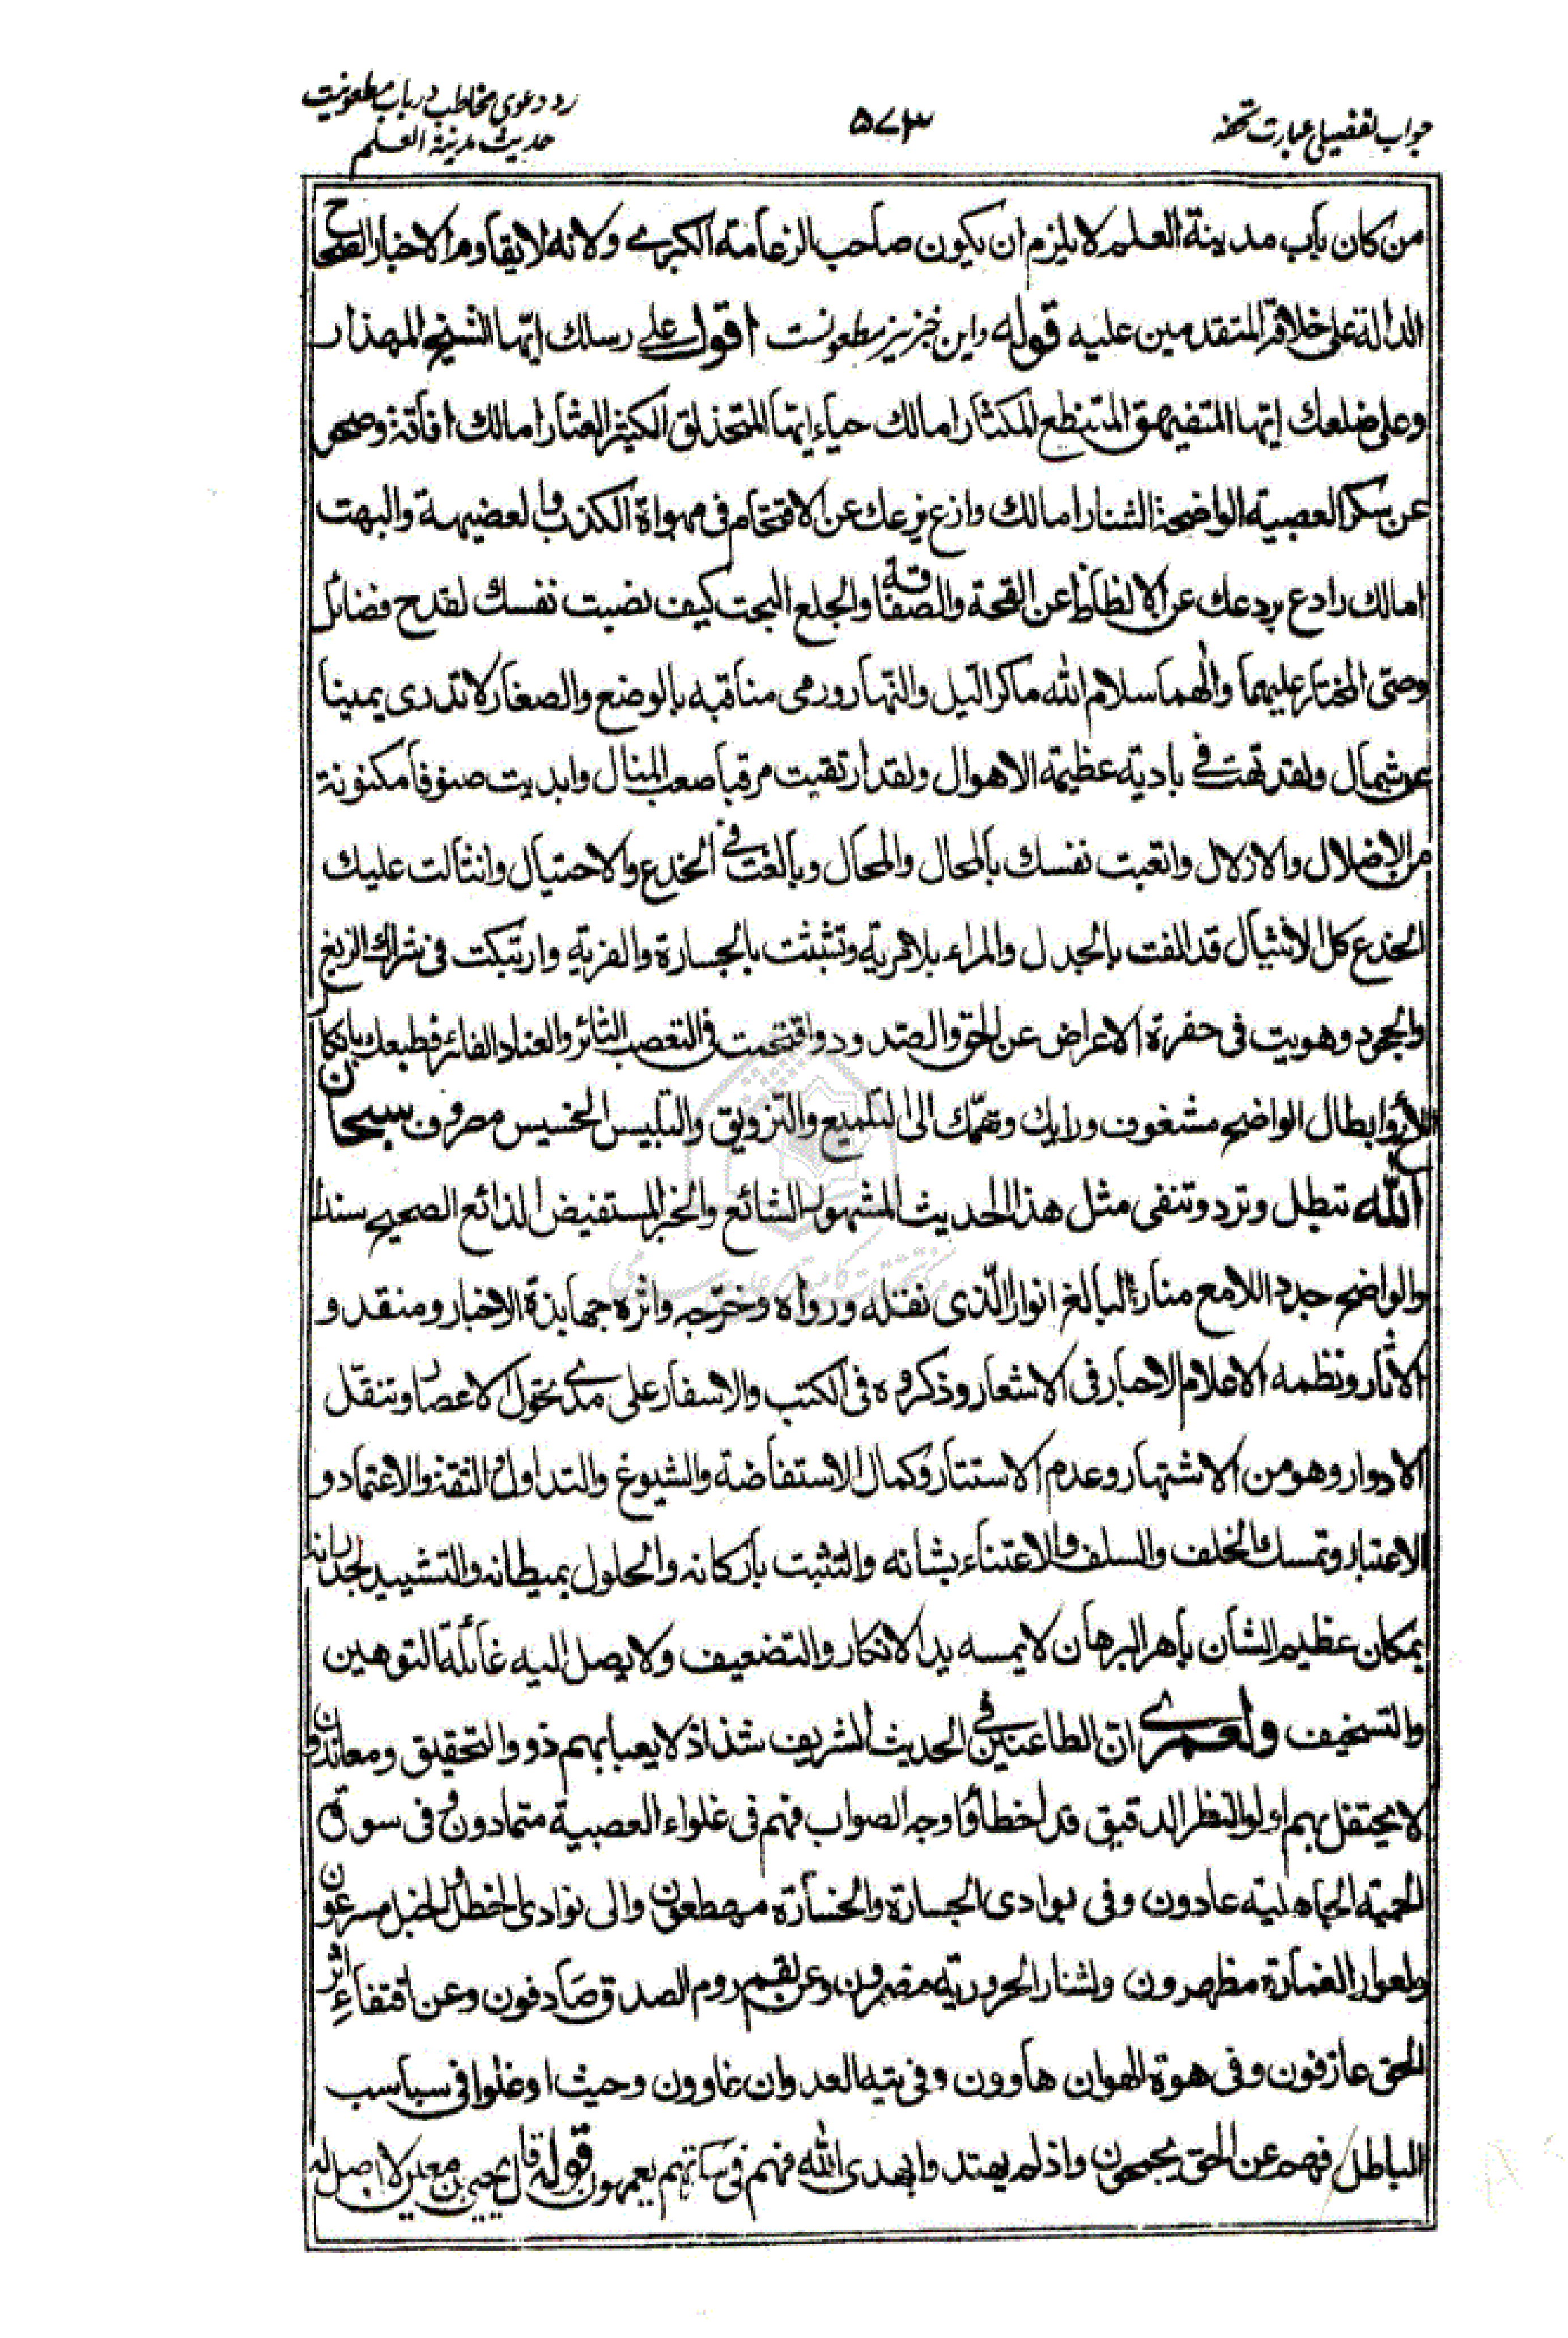 جواب تفصیلی عبارت تحفه
۵۷۳
رد دعوی مخاطب در باب مطعونیت
حدیث مدینة العلم
من كان باب مدينة العلم لا يلزم ان يكون صاحب الزعامة الكبرى ولانه لا يقاوم الاخبار الصحاح
الدالة على خلافة المتقدمين عليه قوله واین خبر نیز مطعونست اقول على رسلك ايّها الشيخ المهذار
وعلى ضلعك ايّها المتفيهق المتنطع المكثار امالك حياء ايّها المتحذلق الكثير العثار امالك افاقة وصحو
عن سكر العصبية الواضحة الشنار امالك وازع يزعك عن الاقتحام فى مهواة الكذب والعضيهة والبهت
امالك رادع يردعك عن الالظاظ عن القحة والصفاقة والجلع البحت كيف نصبت نفسك لقدح فضائل
وصىّ المختار عليهما والهما سلام الله ماكر الليل والنّهار ورمى مناقبه بالوضع والصغار لا تدرى يمينا
عن شمال ولقد تهت فى بادية عظيمة الاهوال ولقد ارتقيت مرقبا صعب المنال وابديت صنوفا مكنونة
من الاضلال والازلال واتعبت نفسك بالمحال والمحال وبالغت فى الخدع والاحتيال وانثالت عليك
الخدع كل الانثيال قد الفت بالجدل والمراء بلا مرية وتشبثت بالجسارة والفرية وارتبكت فى شراك الزيغ
والجحود وهويت فى حفرة الاعراض عن الحق والصدود واقتحمت فى التعصب الثائر والعناد الفائر فطبعك بانكار
اللائح وابطال الواضح مشغوف ورايك وهمّك الى التلميع والتزويق والتلبيس الخسيس مصروف سبحان
الله تبطل وترد وتنفى مثل هذا الحديث المشهور الشائع والخبر المستفيض الذائع الصحيح سندا
والواضح جددا اللامع منارا البالغ انوارا الّذى نقله ورواه وخرّجه واثره جهابذة الاخبار ومنقدو
الاثار ونظمه الاعلام الاحبار فى الاشعار وذكروه فى الكتب والاسفار على مدى تحوّل الاعصار وتنقّل
الادوار وهو من الاشتهار وعدم الاستتار وكمال الاستفاضة والشيوع والتداول والثقة والاعتماد و
الاعتبار وتمسك الخلف والسلف والاعتناء بشانه والتثبت باركانه والحلول بميطانه والتشييد لجدرانه
بمكان عظيم الشان باهر البرهان لا يمسه يد الانكار والتضعيف ولا يصل اليه غائلة التوهين
والتسخيف ولعمرى ان الطاعنين فى الحديث الشريف شذاذ لا يعبا بهم ذوو التحقيق ومعاندون
لا يحتفل بهم اولو النظر الدقيق قد اخطأوا وجه الصواب فهم فى غلواء العصبية متمادون وفى سوق
الحمية الجاهلية عادون وفى بوادى الجسارة والخسارة مهطعون والى نوادى الخطل والخبل مسرعون
ولعوار الغمارة مظهرون ولشنار الحرورية مضمرون وعن لقم روم الصدق صادفون وعن اقتفاء اثر
الحق عازفون وفى هوة الهوان هاوون وفى تيه العدوان غاوون وحيث اوغلوا فى سباسب
الباطل فهم عن الحق يجمحون واذ لم يهتدوا بهدى الله فهم فى سكرتهم يعمهون قوله قال يحيى بن معين لا اصل له